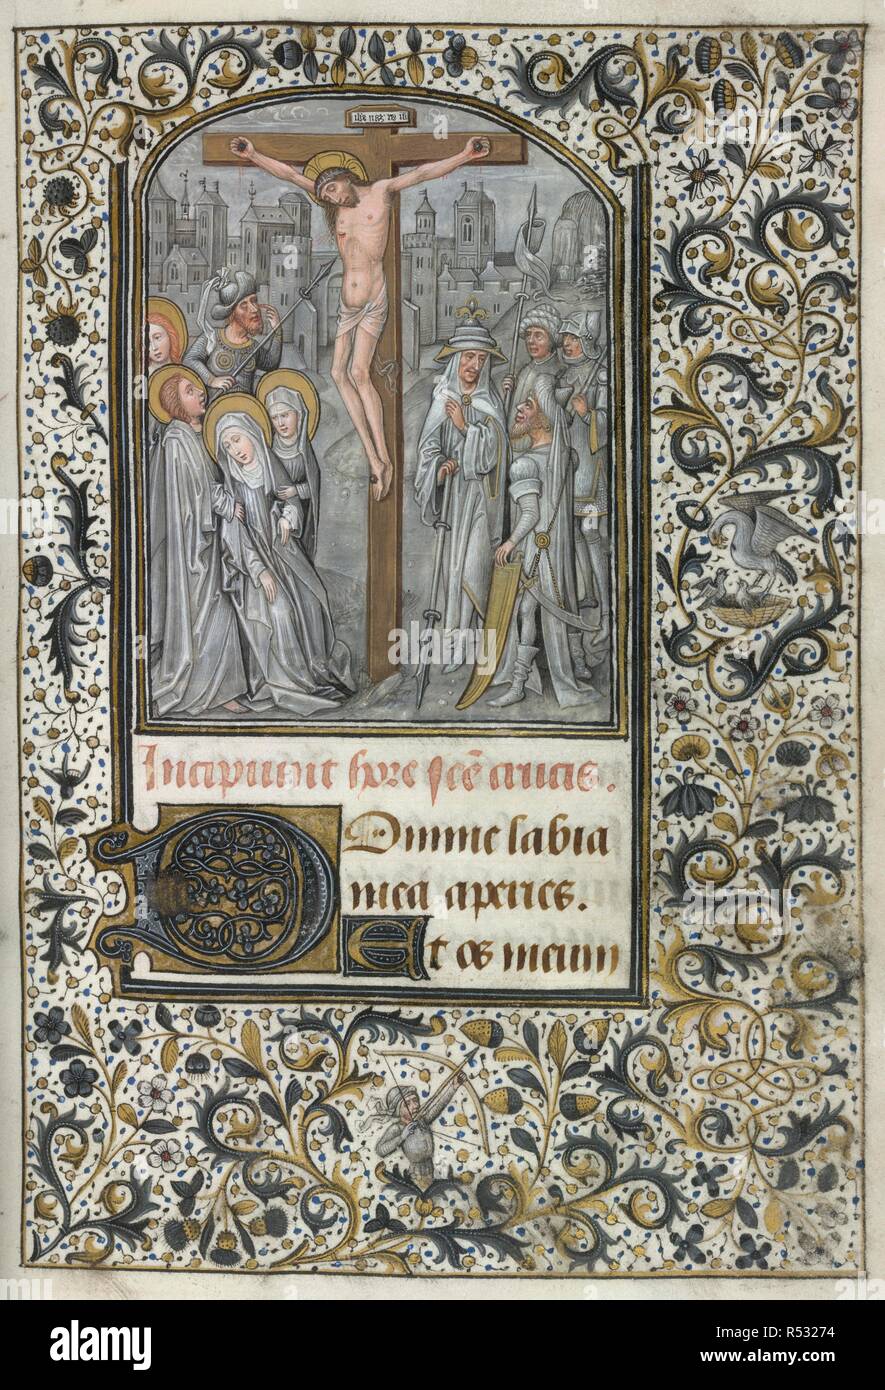 Incipiunt hore sce crucis.
Domine labia
mea aperies.
Et os meum
alamy
Image ID: R53274
www.alamy.com